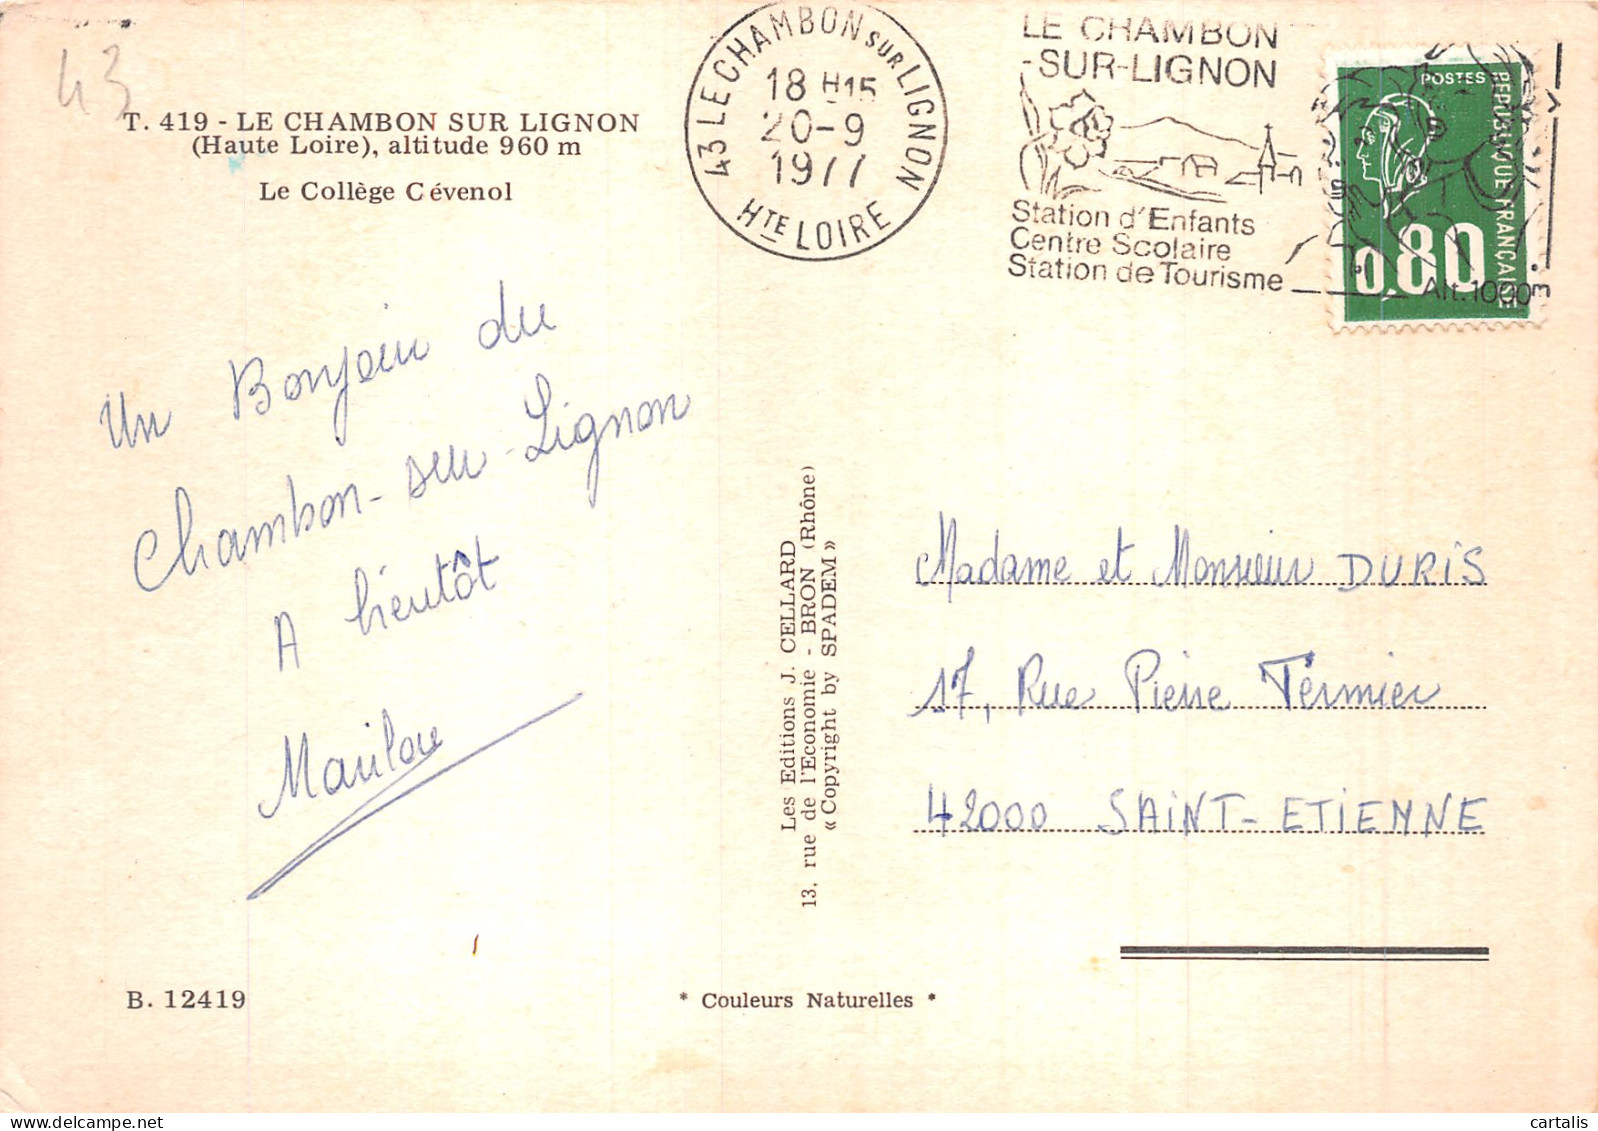 43
T. 419 - LE CHAMBON SUR LIGNON
(Haute Loire), altitude 960 m
Le Collège Cévenol
43 LE CHAMBON SUR LIGNON
18 H15
20-9
1977
HTE LOIRE
LE CHAMBON
-SUR-LIGNON
Station d'Enfants
Centre Scolaire
Station de Tourisme
Alt. 1000m
POSTES
REPUBLIQUE FRANÇAISE
0,80
Un Bonjour du
Chambon-sur-Lignon
A bientôt
Marilou
Les Editions J. CELLARD
13, rue de l'Economie - BRON (Rhône)
« Copyright by SPADEM »
Madame et Monsieur DURIS
17, Rue Pierre Térmier
42000 SAINT-ETIENNE
B. 12419
* Couleurs Naturelles *
cartalis